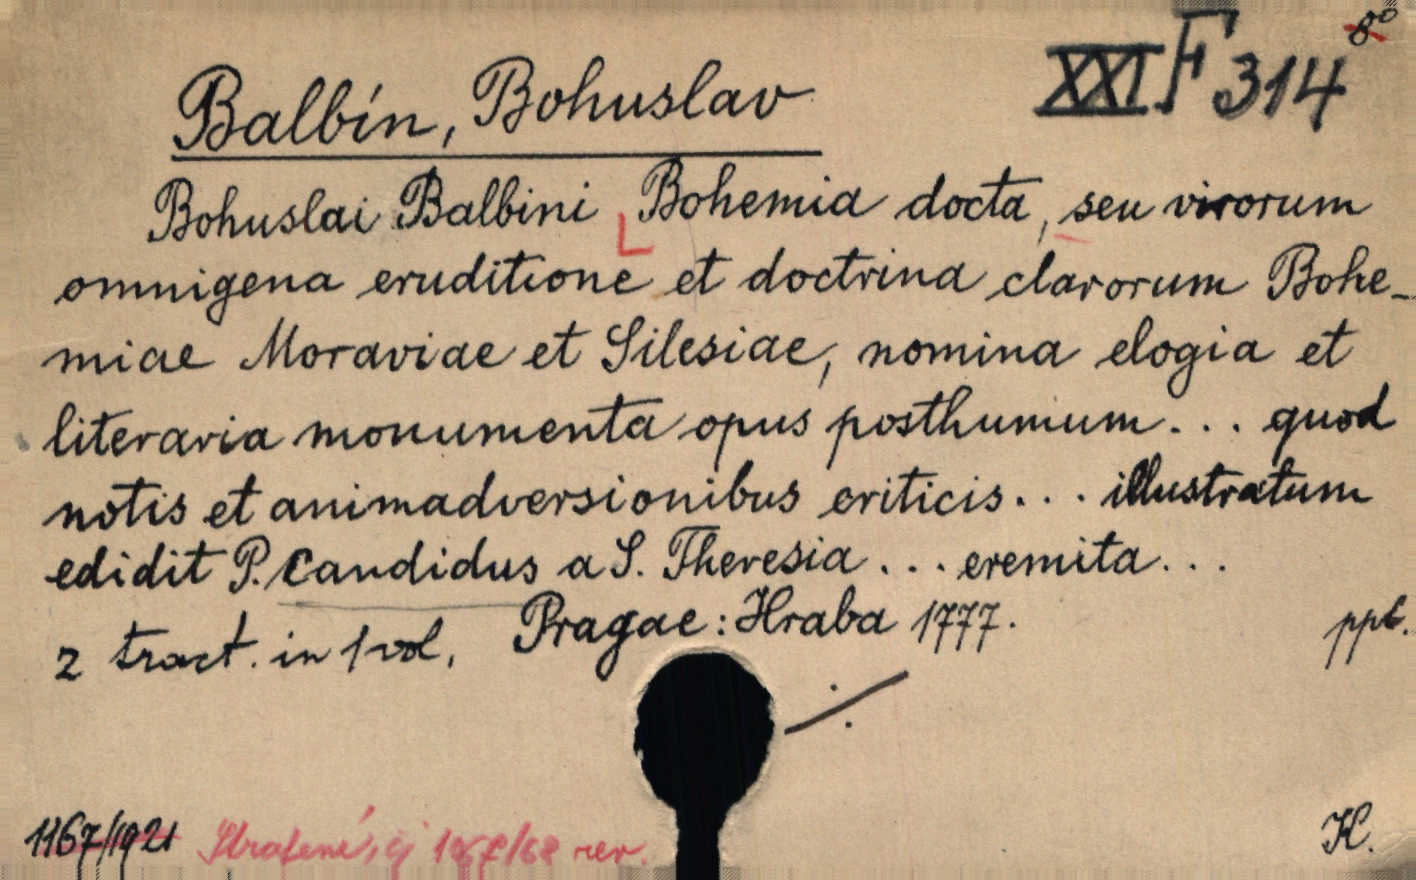 XXI F 314
8°
Balbín, Bohuslav
Bohuslai Balbini Bohemia docta, seu virorum
omnigena eruditione et doctrina clarorum Bohe-
miae Moraviae et Silesiae, nomina elogia et
literaria monumenta opus posthumum... quod
notis et animadversionibus criticis... illustratum
edidit P. Candidus a S. Theresia... eremita...
2 tract. in 1 vol. Pragae: Hraba 1777. ppb.
1167/1921 rev.
H.